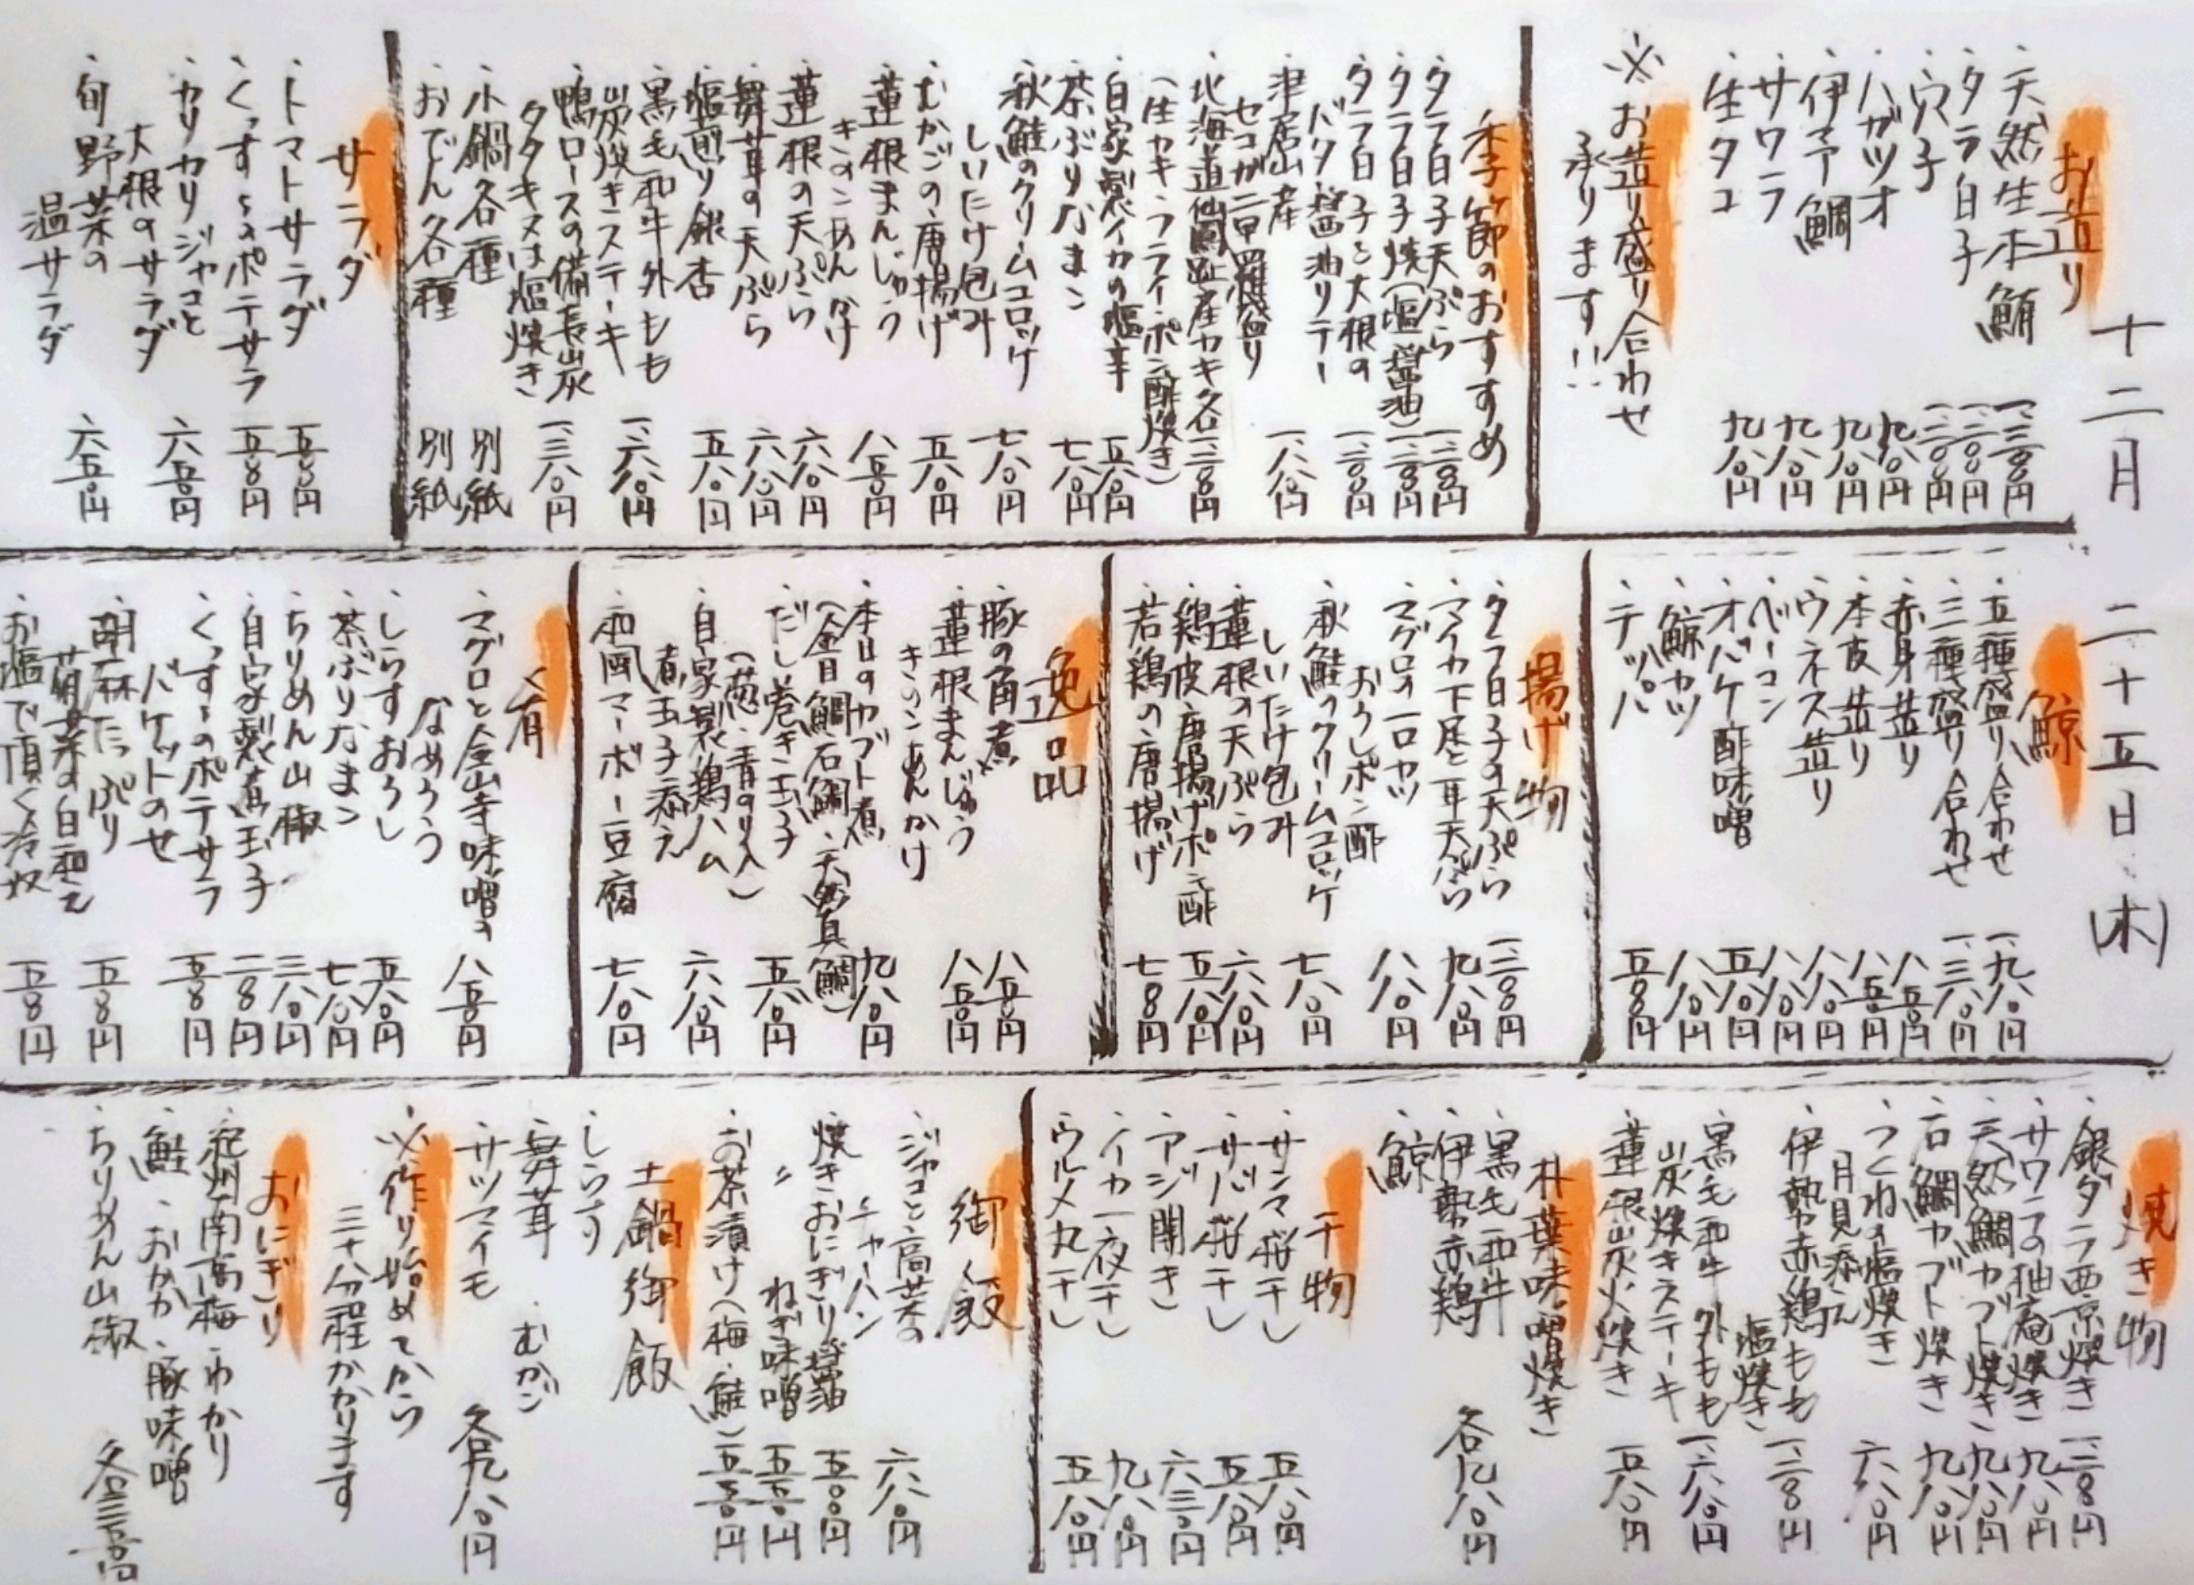 十二月二十五日(木)
お造り
・天然生本鮪 一、三八〇円
・タラ白子 一、二八〇円
・穴子 一、二八〇円
・ハガツオ 九八〇円
・伊予鯛 九八〇円
・サワラ 九八〇円
・生タコ 九八〇円
※お造り盛り合わせ
承ります!!
季節のおすすめ
・タラ白子天ぷら 一、二八〇円
・タラ白子焼(塩・醤油) 一、二八〇円
・タラ白子と大根の
バター醤油ソテー 一、二八〇円
・津居山産
セコガニ甲羅盛り 一、八八〇円
・北海道仙鳳趾産カキ各 一、二八〇円
(生カキ・フライ・ポン酢・焼き)
・自家製イカの塩辛 五八〇円
・茶ぶりなまこ 七八〇円
・秋鮭のクリームコロッケ
しいたけ包み 七八〇円
・むかごの唐揚げ 五八〇円
・蓮根まんじゅう
きのこあんかけ 八五〇円
・蓮根の天ぷら 六八〇円
・舞茸の天ぷら 六八〇円
・塩煎り銀杏 五八〇円
・黒毛和牛外もも
炭焼きステーキ 一、六八〇円
・鴨ロースの備長炭
タタキ又は塩焼き 一、三八〇円
・小鍋各種 別紙
・おでん各種 別紙
サラダ
・トマトサラダ 五八〇円
・くっす〜のポテサラ 五八〇円
・カリカリジャコと
大根のサラダ 六五〇円
・旬野菜の
温サラダ 六五〇円
鯨
・五種盛り合わせ 一、九八〇円
・三種盛り合わせ 一、三八〇円
・赤身造り 八五〇円
・本皮造り 八五〇円
・ウネス造り 八八〇円
・ベーコン 八八〇円
・オバケ酢味噌 五八〇円
・鯨カツ 八八〇円
・テッパ 五八〇円
揚げ物
・タラ白子の天ぷら 一、二八〇円
・マイカ下足と耳天ぷら 九八〇円
・マグロの一口カツ
おろしポン酢 八八〇円
・秋鮭のクリームコロッケ
しいたけ包み 七八〇円
・蓮根の天ぷら 六八〇円
・鶏皮唐揚げポン酢 五八〇円
・若鶏の唐揚げ 七八〇円
逸品
・豚の角煮 八五〇円
・蓮根まんじゅう
きのこあんかけ 八五〇円
・本日のカブト煮 九八〇円
(金目鯛・石鯛・天然真鯛)
・だし巻き玉子 五八〇円
(葱・青のり入)
・自家製鶏ハム
煮玉子添え 六八〇円
・和風マーボー豆腐 七八〇円
く肴
・マグロと金山寺味噌の
なめろう 八五〇円
・しらすおろし 五八〇円
・茶ぶりなまこ 七八〇円
・ちりめん山椒 三八〇円
・自家製煮玉子 二八〇円
・くっす〜のポテサラ
バケットのせ 五八〇円
・胡麻たっぷり
菊菜の白和え 五八〇円
・お塩で頂く冷奴 五八〇円
焼き物
・銀ダラ西京焼き 一、二八〇円
・サワラの柚庵焼き 九八〇円
・天然鯛カブト焼き 九八〇円
・石鯛カブト焼き 九八〇円
・つくねの塩焼き
月見添え 六八〇円
・伊勢赤鶏もも
塩焼き 一、二八〇円
・黒毛和牛外もも
炭焼きステーキ 一、六八〇円
・蓮根炭火焼き 五八〇円
朴葉味噌焼き
・黒毛和牛
・伊勢赤鶏
・鯨 各九八〇円
干物
・サンマ桜干し 五八〇円
・サバ桜干し 五八〇円
・アジ開き 六三〇円
・イカ一夜干し 九八〇円
・ウルメ丸干し 五八〇円
御飯
・ジャコと高菜の
チャーハン 六八〇円
・焼きおにぎり醤油 五〇〇円
・〃 ねぎ味噌 五五〇円
・お茶漬け(梅・鮭) 五五〇円
土鍋御飯
・しらす
・舞茸 ・むかご
・サツマイモ 各九八〇円
※作り始めてから
三十分程かかります
おにぎり
・紀州南高梅・わかり
・鮭・おかか・豚味噌
・ちりめん山椒 各三五〇円